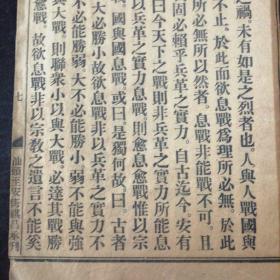 之禍未有如是之烈者也人與人戰國與
不止於此而欲息戰爲理所必無於此
所必無所以然者息戰非能戰不可且
固必賴乎兵革之實力自古迄今安有
曰今天下之戰非以兵革之實力所能
以兵革之實力息戰則愈息愈戰惟以宗
戰國與國息戰或曰是獨何故曰古者
大必勝小故欲息戰非以兵革之實力不
不必能勝弱大不必能勝小弱不能與強
與大戰則聯衆小以與大戰必達其戰勝
愈戰故欲息戰非以宗教之遺言不能矣
七